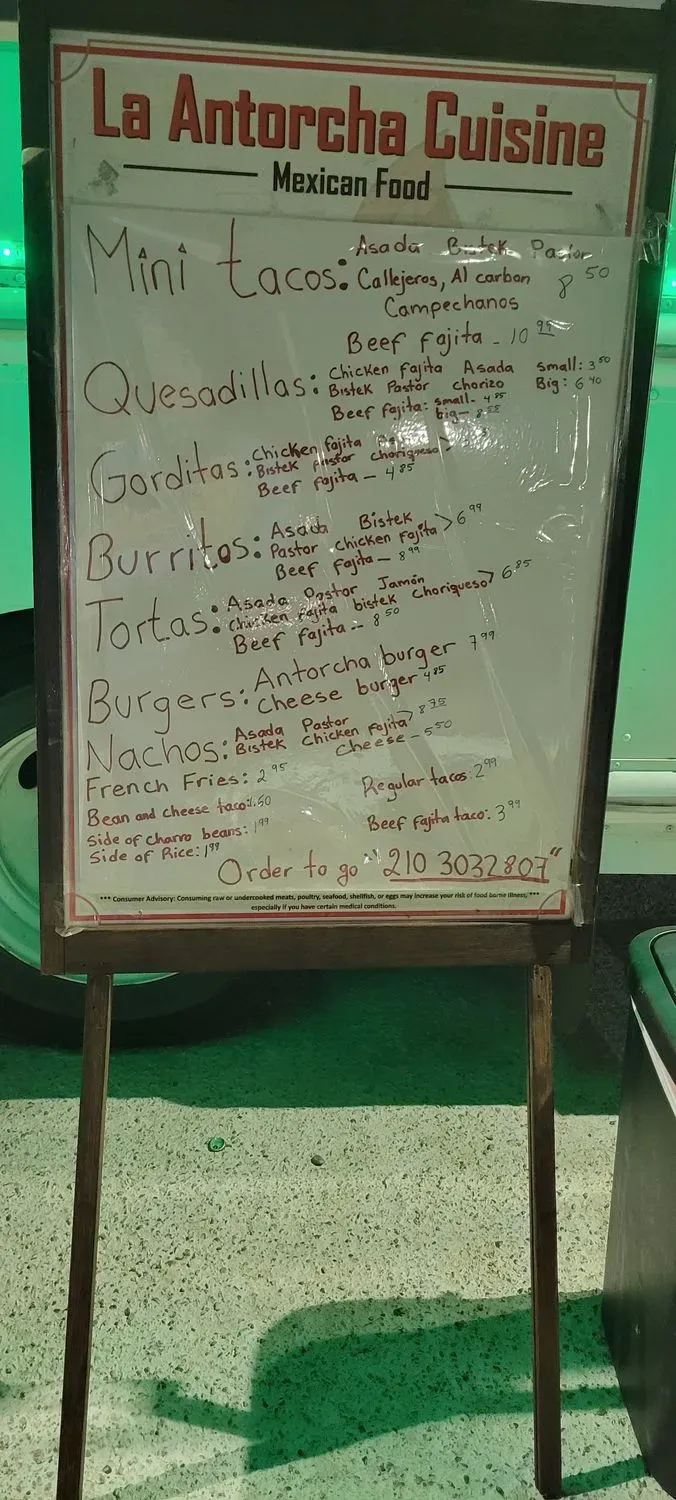 La Antorcha Cuisine
Mexican Food
Mini tacos: Asada Bistek Pastor
Callejeros, Al carbon 8 50
Campechanos
Beef fajita - 10 95
Quesadillas: Chicken fajita Asada small: 3 50
Bistek Pastor chorizo Big: 6 40
Beef fajita: small- 4 85
big-
Gorditas: Chicken fajita
Bistek Pastor choriqueso >
Beef fajita - 4 85
Burritos: Asada Bistek
Pastor chicken fajita > 6 99
Beef fajita - 8 99
Tortas: Asada Pastor Jamón
chicken fajita bistek choriqueso > 6 85
Beef fajita -- 8 50
Burgers: Antorcha burger 7 99
cheese burger 4 85
Nachos: Asada Pastor
Bistek Chicken fajita > 8 75
Cheese - 5 50
French Fries: 2 95
Regular tacos: 2 99
Bean and cheese taco: 1.50
Beef fajita taco: 3 99
Side of charro beans: 1 99
Side of Rice: 1 99
Order to go " 210 3032807 "
*** Consumer Advisory: Consuming raw or undercooked meats, poultry, seafood, shellfish, or eggs may increase your risk of food borne illness, ***
especially if you have certain medical conditions.